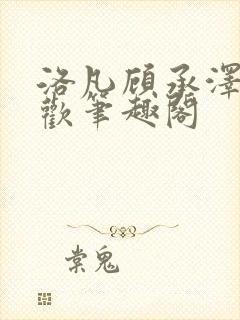 洛凡顾承泽
歡笔趣阁
棠鬼